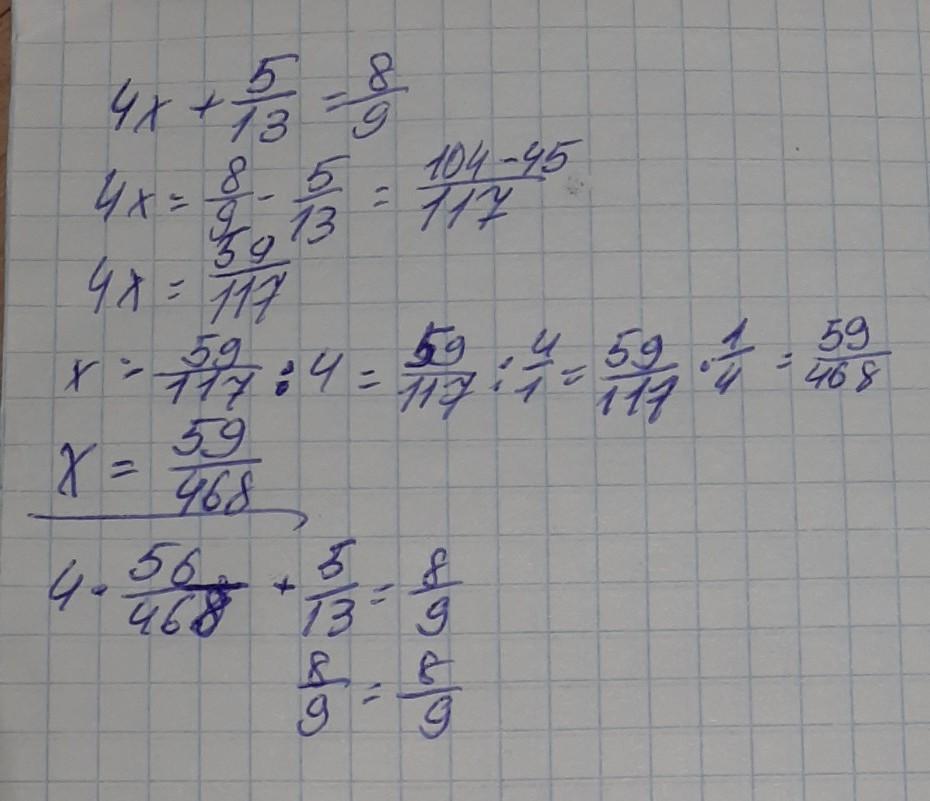 4x + 5/13 = 8/9
4x = 8/9 - 5/13 = 104-45/117
4x = 59/117
x = 59/117 : 4 = 59/117 : 4/1 = 59/117 · 1/4 = 59/468
x = 59/468
4 · 56/468 + 5/13 = 8/9
8/9 = 8/9